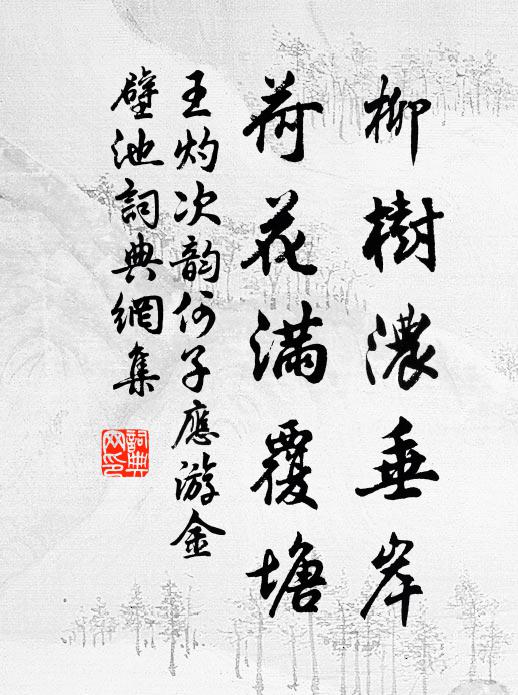 柳樹濃垂岸
荷花滿覆塘
王灼次韵何子應游金
壁池詞典網集
詞典
网印